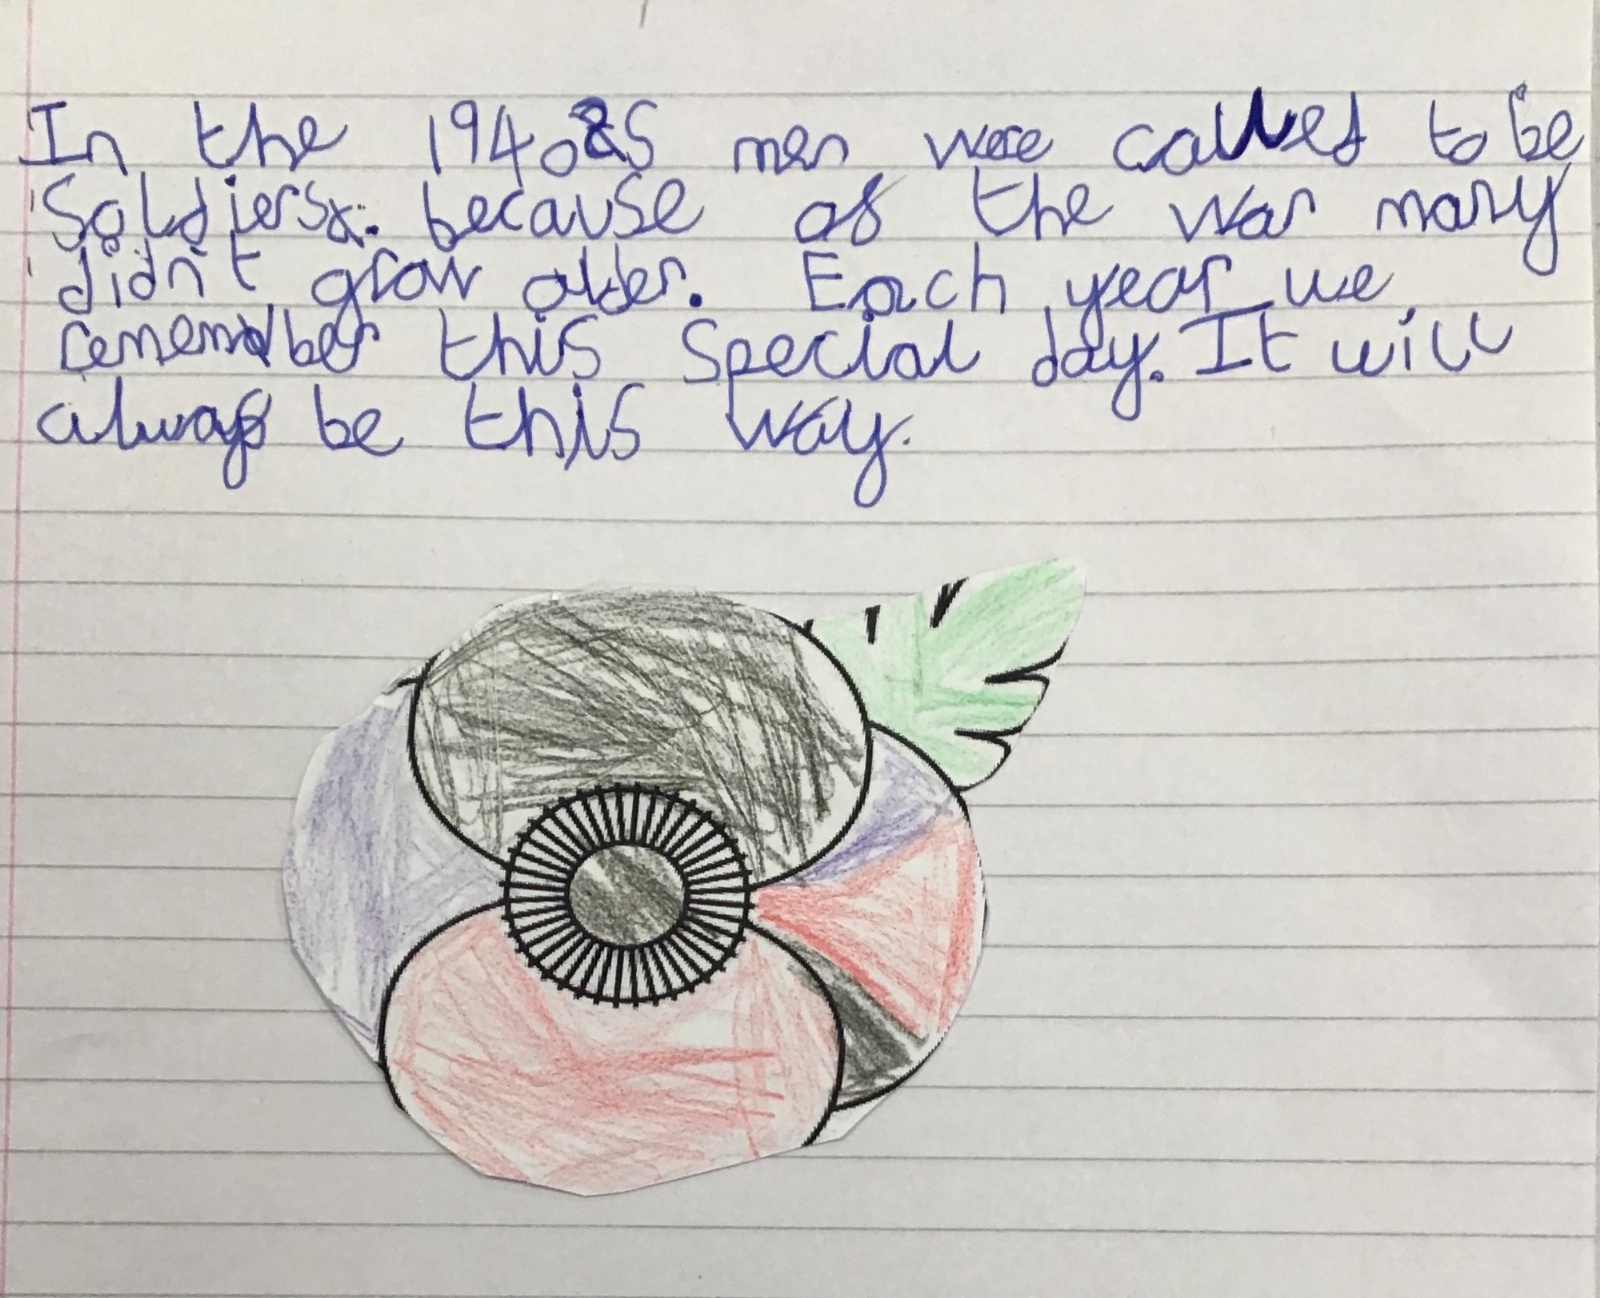 In the 1940s men were called to be
Soldiers. because of the war many
didn't grow older. Each year we
remember this special day. It will
always be this way.